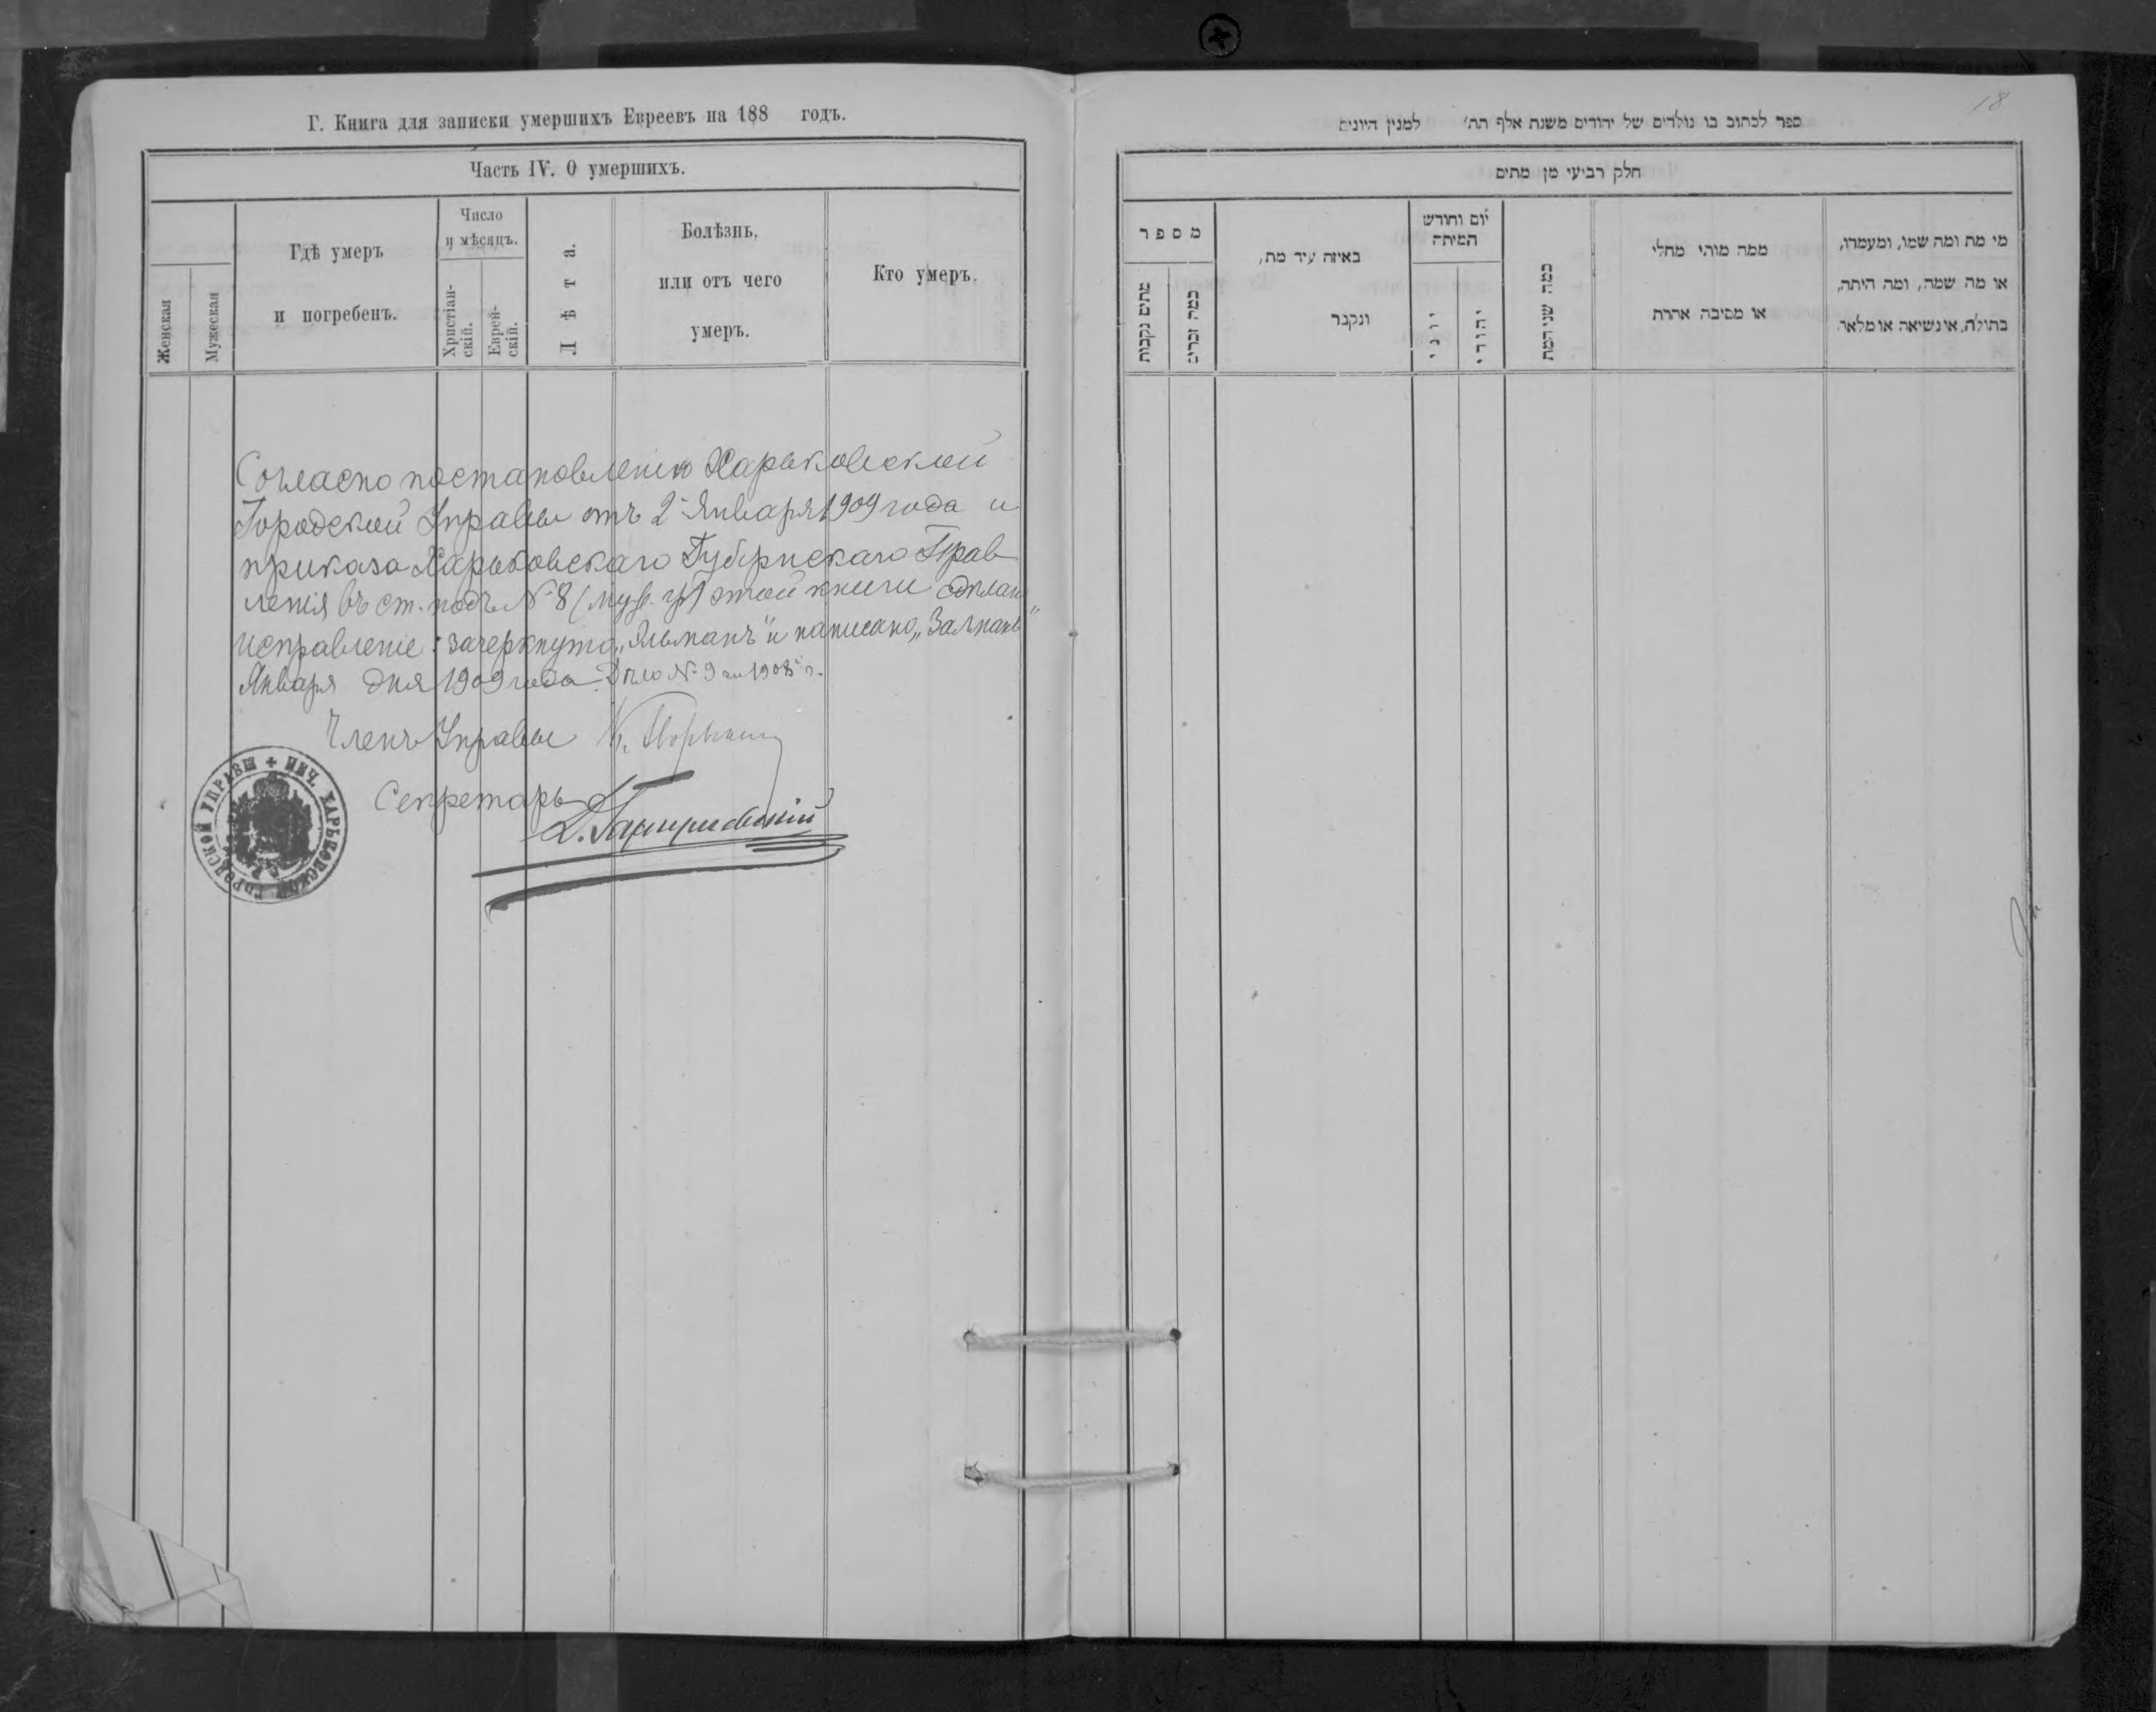 Г. Книга для записки умершихъ Евреевъ на 188 годъ.
Часть IV. О умершихъ.
Женская
Мужеская
Гдѣ умеръ
и погребенъ.
Число
и мѣсяцъ.
Христіан-
скій.
Еврей-
скій.
Лѣта.
Болѣзнь,
или отъ чего
умеръ.
Кто умеръ.
Согласно постановленію Харьковской
Городской Управы отъ 2 Января 1909 года и
приказа Харьковскаго Губернскаго Прав
ленія въ ст. подъ № 8 этой книги
исправленіе: зачеркнуто и написано
Января дня 1909 года. Дѣло № 9
Членъ Управы
Секретарь
ХАРЬКОВСКОЙ ГОРОДСКОЙ УПРАВЫ
18
ספר לכתוב בו נולדים של יהודים משנת אלף תת׳ למנין היונים
חלק רביעי מן מתים
מספר
מתים נקבות
כמה זכרים
באיזה עיר מת,
ונקבר
יום וחודש
המיתה
יוני
יהודי
כמה שני המת
ממה מותו מחלי
או מסיבה אחרת
מי מת ומה שמו, ומעמדו,
או מה שמה, ומה היתה,
בתולה, או נשיאה או מלאר